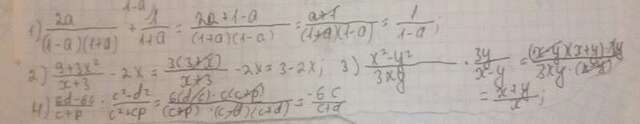 1) 2a/((1-a)(1+a)) + 1/(1+a) = (2a+1-a)/((1+a)(1-a)) = (a+1)/((1+a)(1-a)) = 1/(1-a);
2) (9+3x²)/(x+3) - 2x = 3(3+x)/(x+3) - 2x = 3-2x; 3) (x²-y²)/(3xy) · 3y/(x-y) = ((x-y)(x+y)·3y)/(3xy·(x-y)) = (x+y)/x;
4) (6d-6c)/(c+p) · (c²-d²)/(c²+cp) = (6(d-c)·c(c+p))/((c+p)·(c-d)(c+d)) = -6c/(c+d)